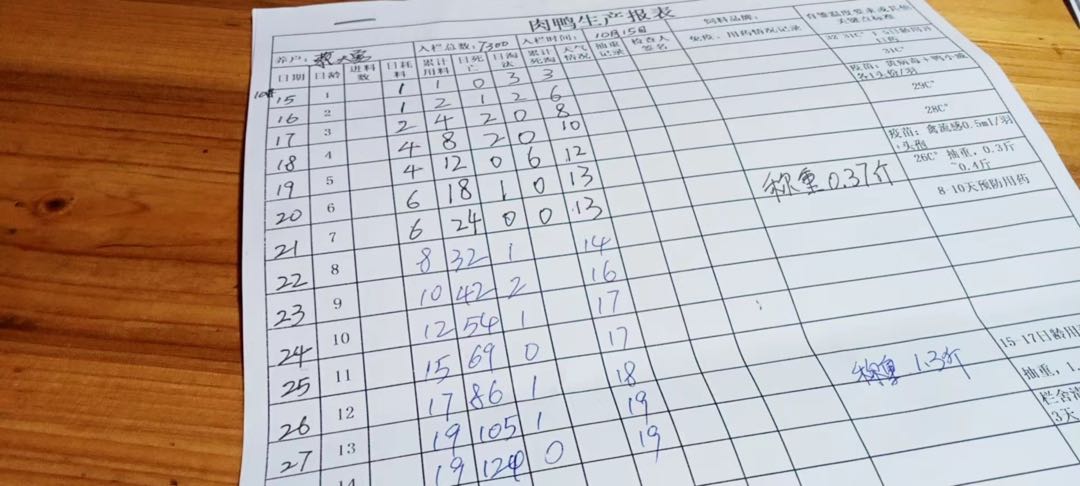 肉鸭生产报表
养户: 入栏总数: 7300 入栏时间: 10月15日 饲料品牌:
日期 日龄 进料数 日耗料 累计用料 日死亡 日淘汰 累计死淘 天气情况 抽重记录 检查人签名 免疫、用药情况记录
15 1 1 1 0 3 3 31C°
16 2 1 2 1 2 6 29C°
17 3 2 4 2 0 8 28C°
18 4 4 8 2 0 10 疫苗: 禽流感0.5ml/羽
19 5 4 12 0 6 12 26C° 抽重, 0.3斤~0.4斤
20 6 6 18 1 0 13 称重0.37斤 8-10天预防用药
21 7 6 24 0 0 13
22 8 8 32 1 14
23 9 10 42 2 16
24 10 12 54 1 17
25 11 15 69 0 17
26 12 17 86 1 18 称重 1.3斤 15-17日龄用
27 13 19 105 1 19 抽重, 1.
14 19 124 0 19 栏舍清
3天